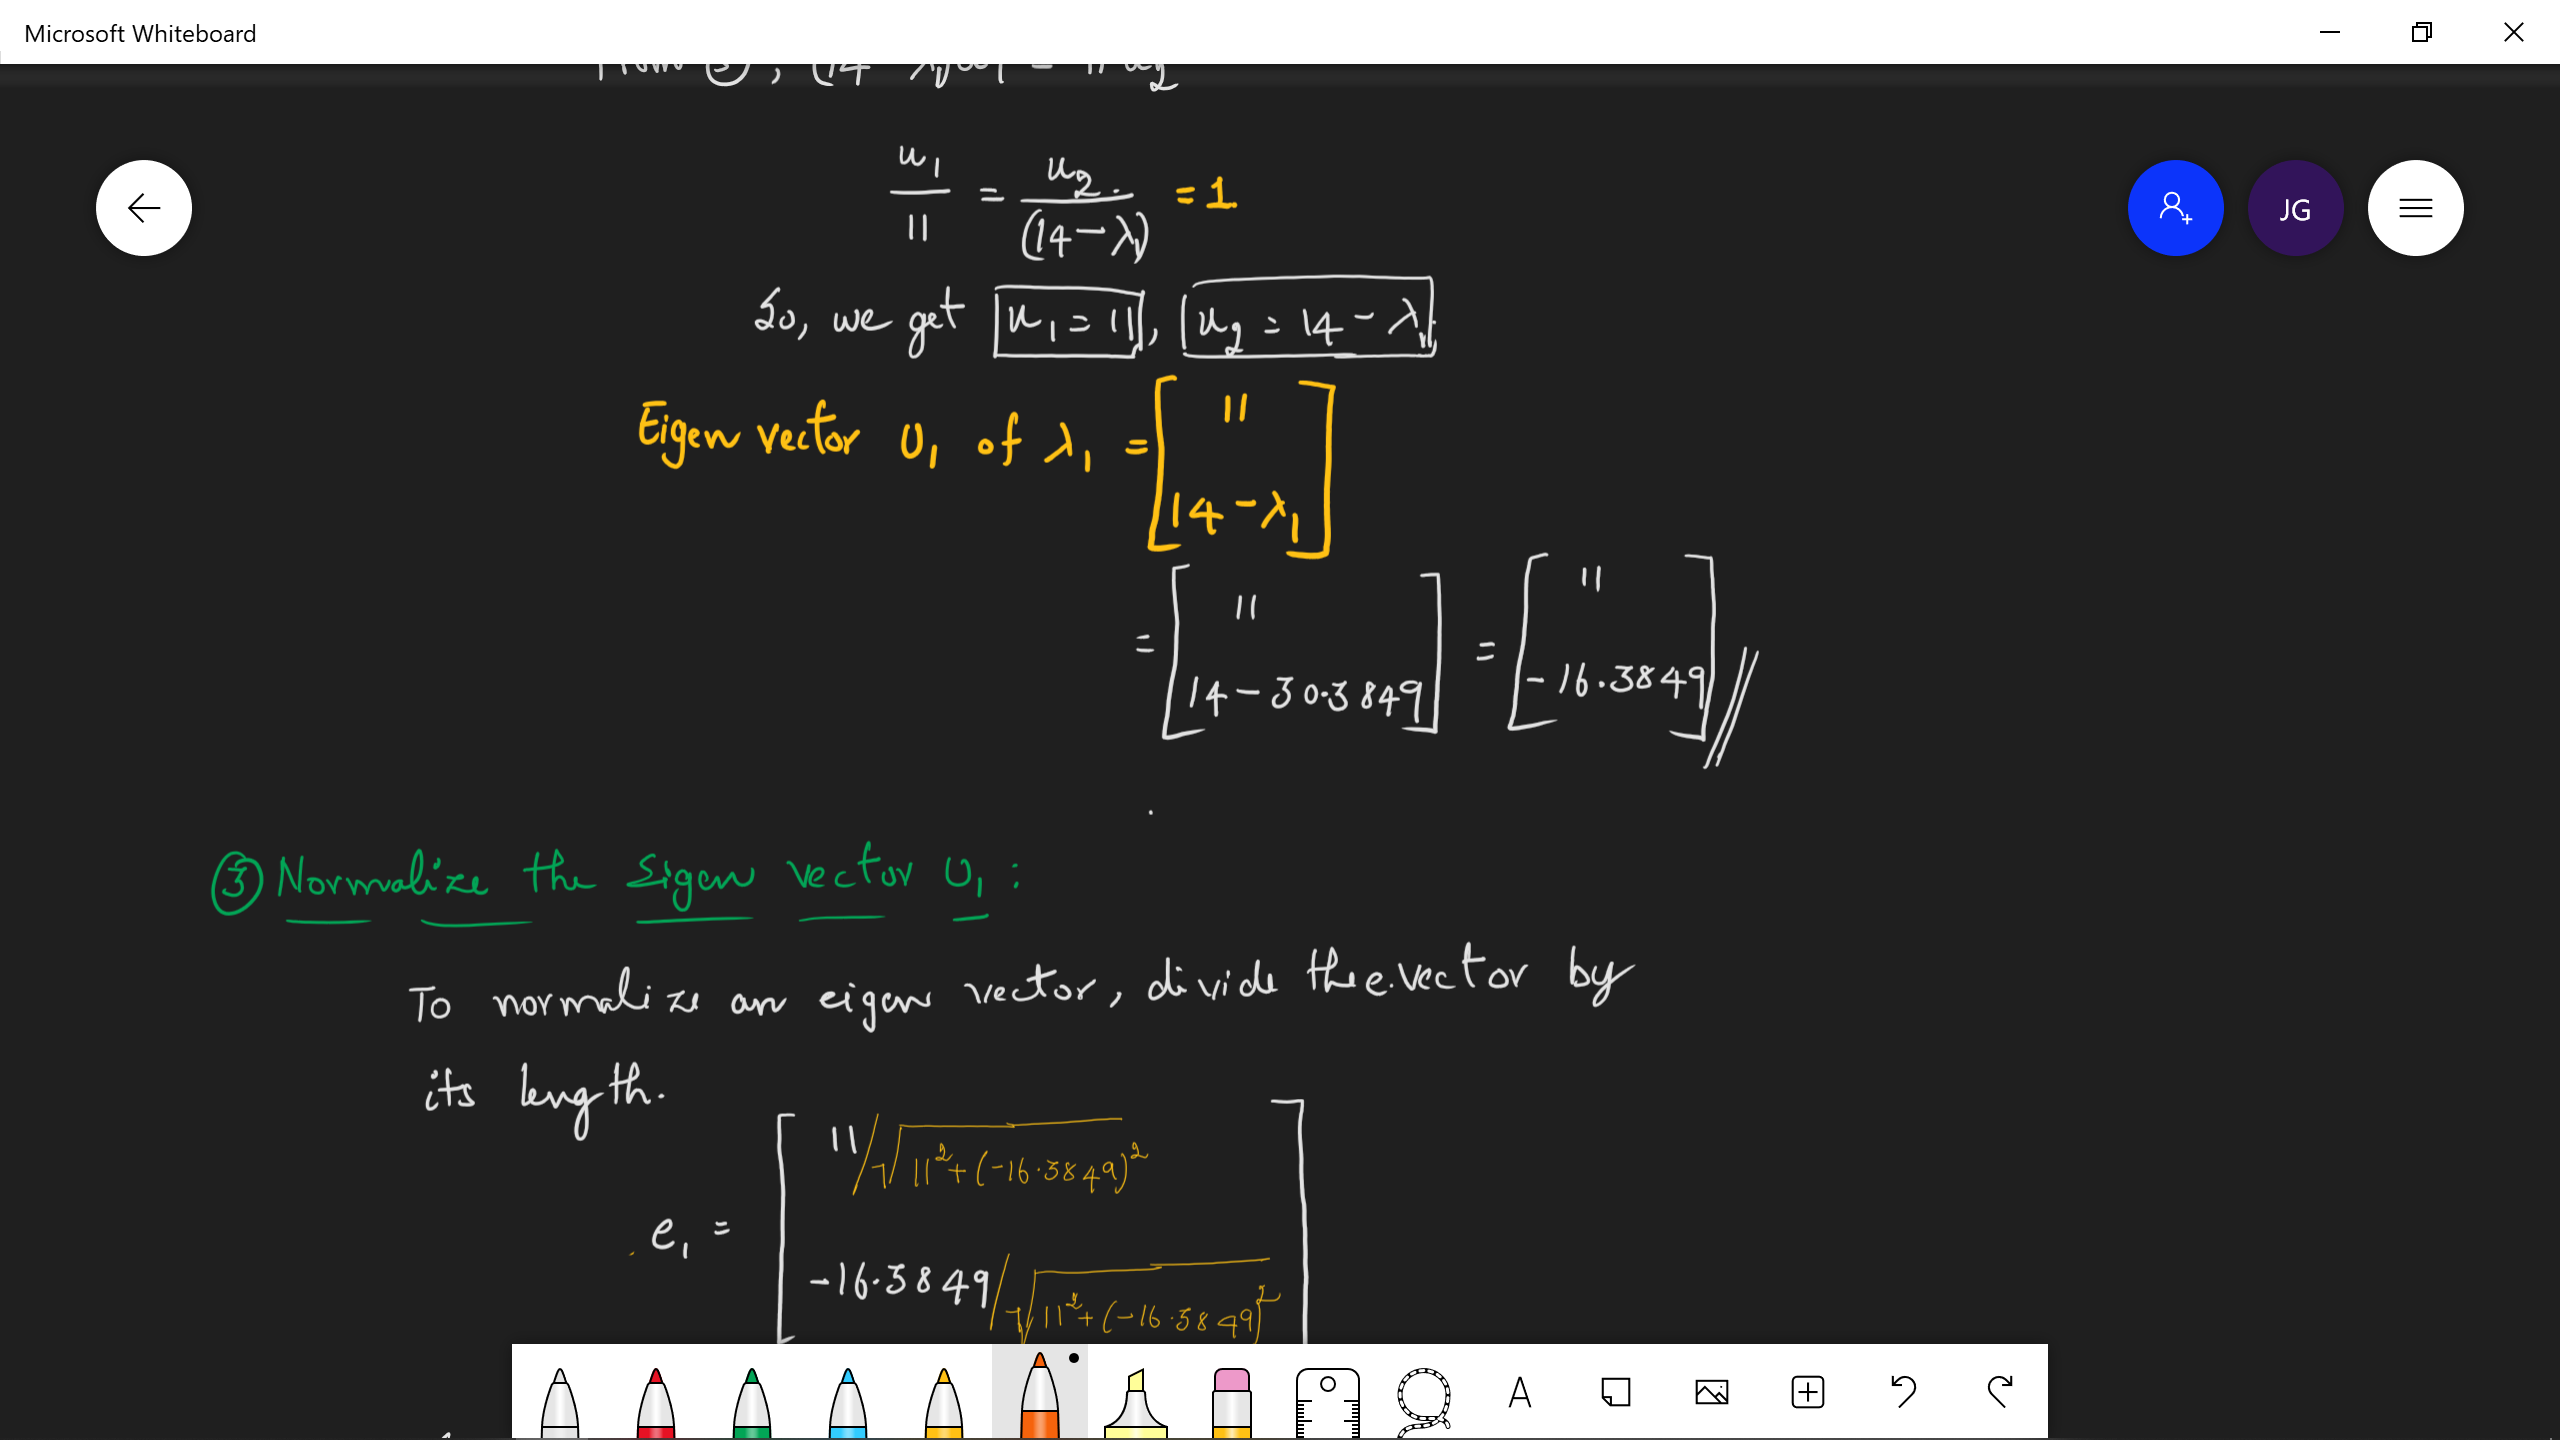 Microsoft Whiteboard
From ③, (14 - λ₁)u₁ = 11 u₂
u₁/11 = u₂/(14-λ₁) = 1
So, we get u₁ = 11, u₂ = 14 - λ₁
JG
Eigen vector U₁ of λ₁ = [ 11
14 - λ₁ ]
= [ 11
14 - 30.3849 ] = [ 11
-16.3849 ]
③ Normalize the Eigen vector U₁ :
To normalize an eigen vector, divide the e.vector by
its length.
e₁ = [ 11/√(11² + (-16.3849)²)
-16.3849/√(11² + (-16.3849)²) ]